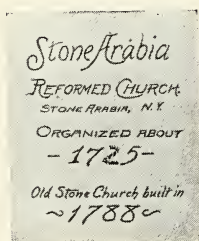 Stone Arabia
REFORMED CHURCH
STONE ARABIA, N.Y.
ORGANIZED ABOUT
- 1725 -
Old Stone Church built in
~ 1788 ~